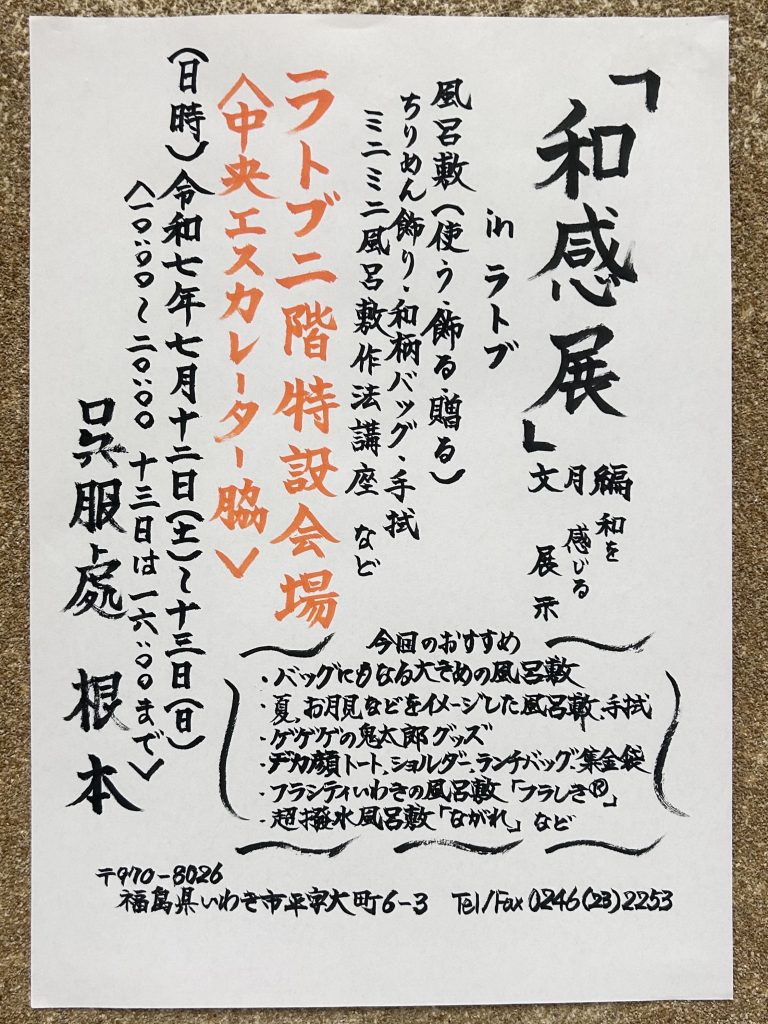 「和感展」
編 和を
月 感じる
文 展示
in ラトブ
風呂敷(使う・飾る・贈る)
ちりめん飾り・和柄バッグ・手拭
ミニミニ風呂敷作法講座 など
ラトブ二階特設会場
〈中央エスカレーター脇〉
(日時)令和七年七月十二日(土)~十三日(日)
〈一〇:〇〇~二〇:〇〇 十三日は一六:〇〇まで〉
呉服處 根本
今回のおすすめ
・バッグにもなる大きめの風呂敷
・夏、お月見などをイメージした風呂敷、手拭
・ゲゲゲの鬼太郎グッズ
・デカ顔トート、ショルダー、ランチバッグ、集金袋
・フラシティいわきの風呂敷「フラしき®」
・超撥水風呂敷「ながれ」など
〒970-8026
福島県いわき市平字大町6-3 Tel/Fax 0246(23)2253